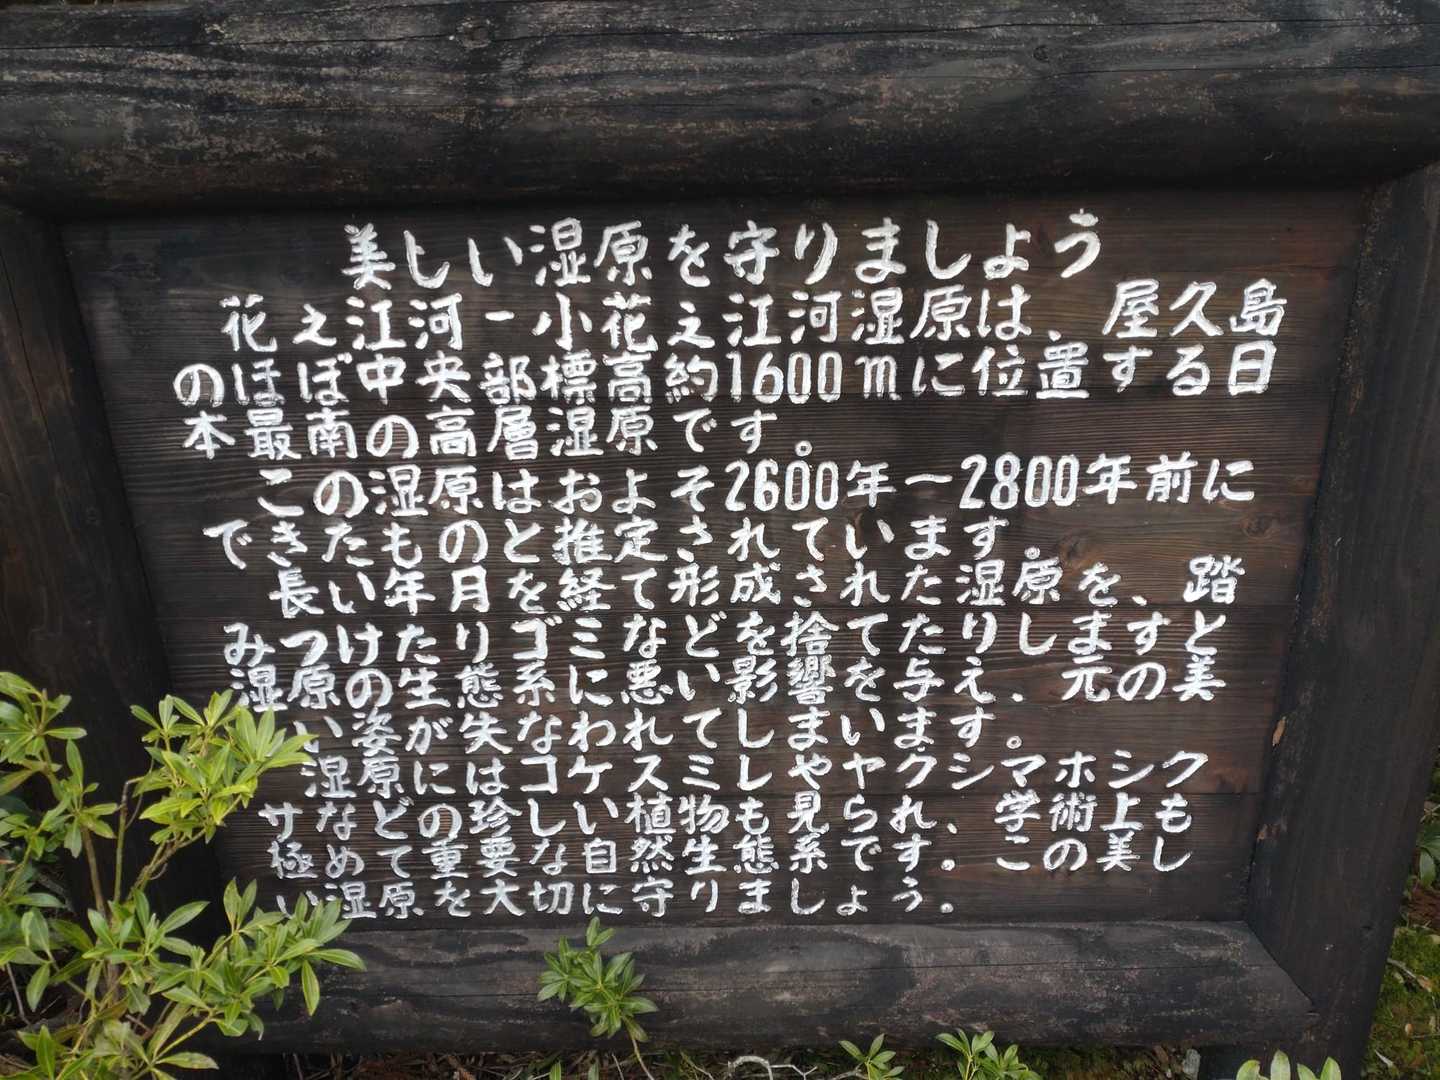 美しい湿原を守りましょう
花之江河-小花之江河湿原は、屋久島
のほぼ中央部標高約1600mに位置する日
本最南の高層湿原です。
この湿原はおよそ2600年ー2800年前に
できたものと推定されています。
長い年月を経て形成された湿原を、踏
みつけたりゴミなどを捨てたりしますと
湿原の生態系に悪い影響を与え、元の美
い姿が失なわれてしまいます。
湿原にはコケスミレやヤクシマホシク
サなどの珍しい植物も見られ、学術上も
極めて重要な自然生態系です。この美し
い湿原を大切に守りましょう。